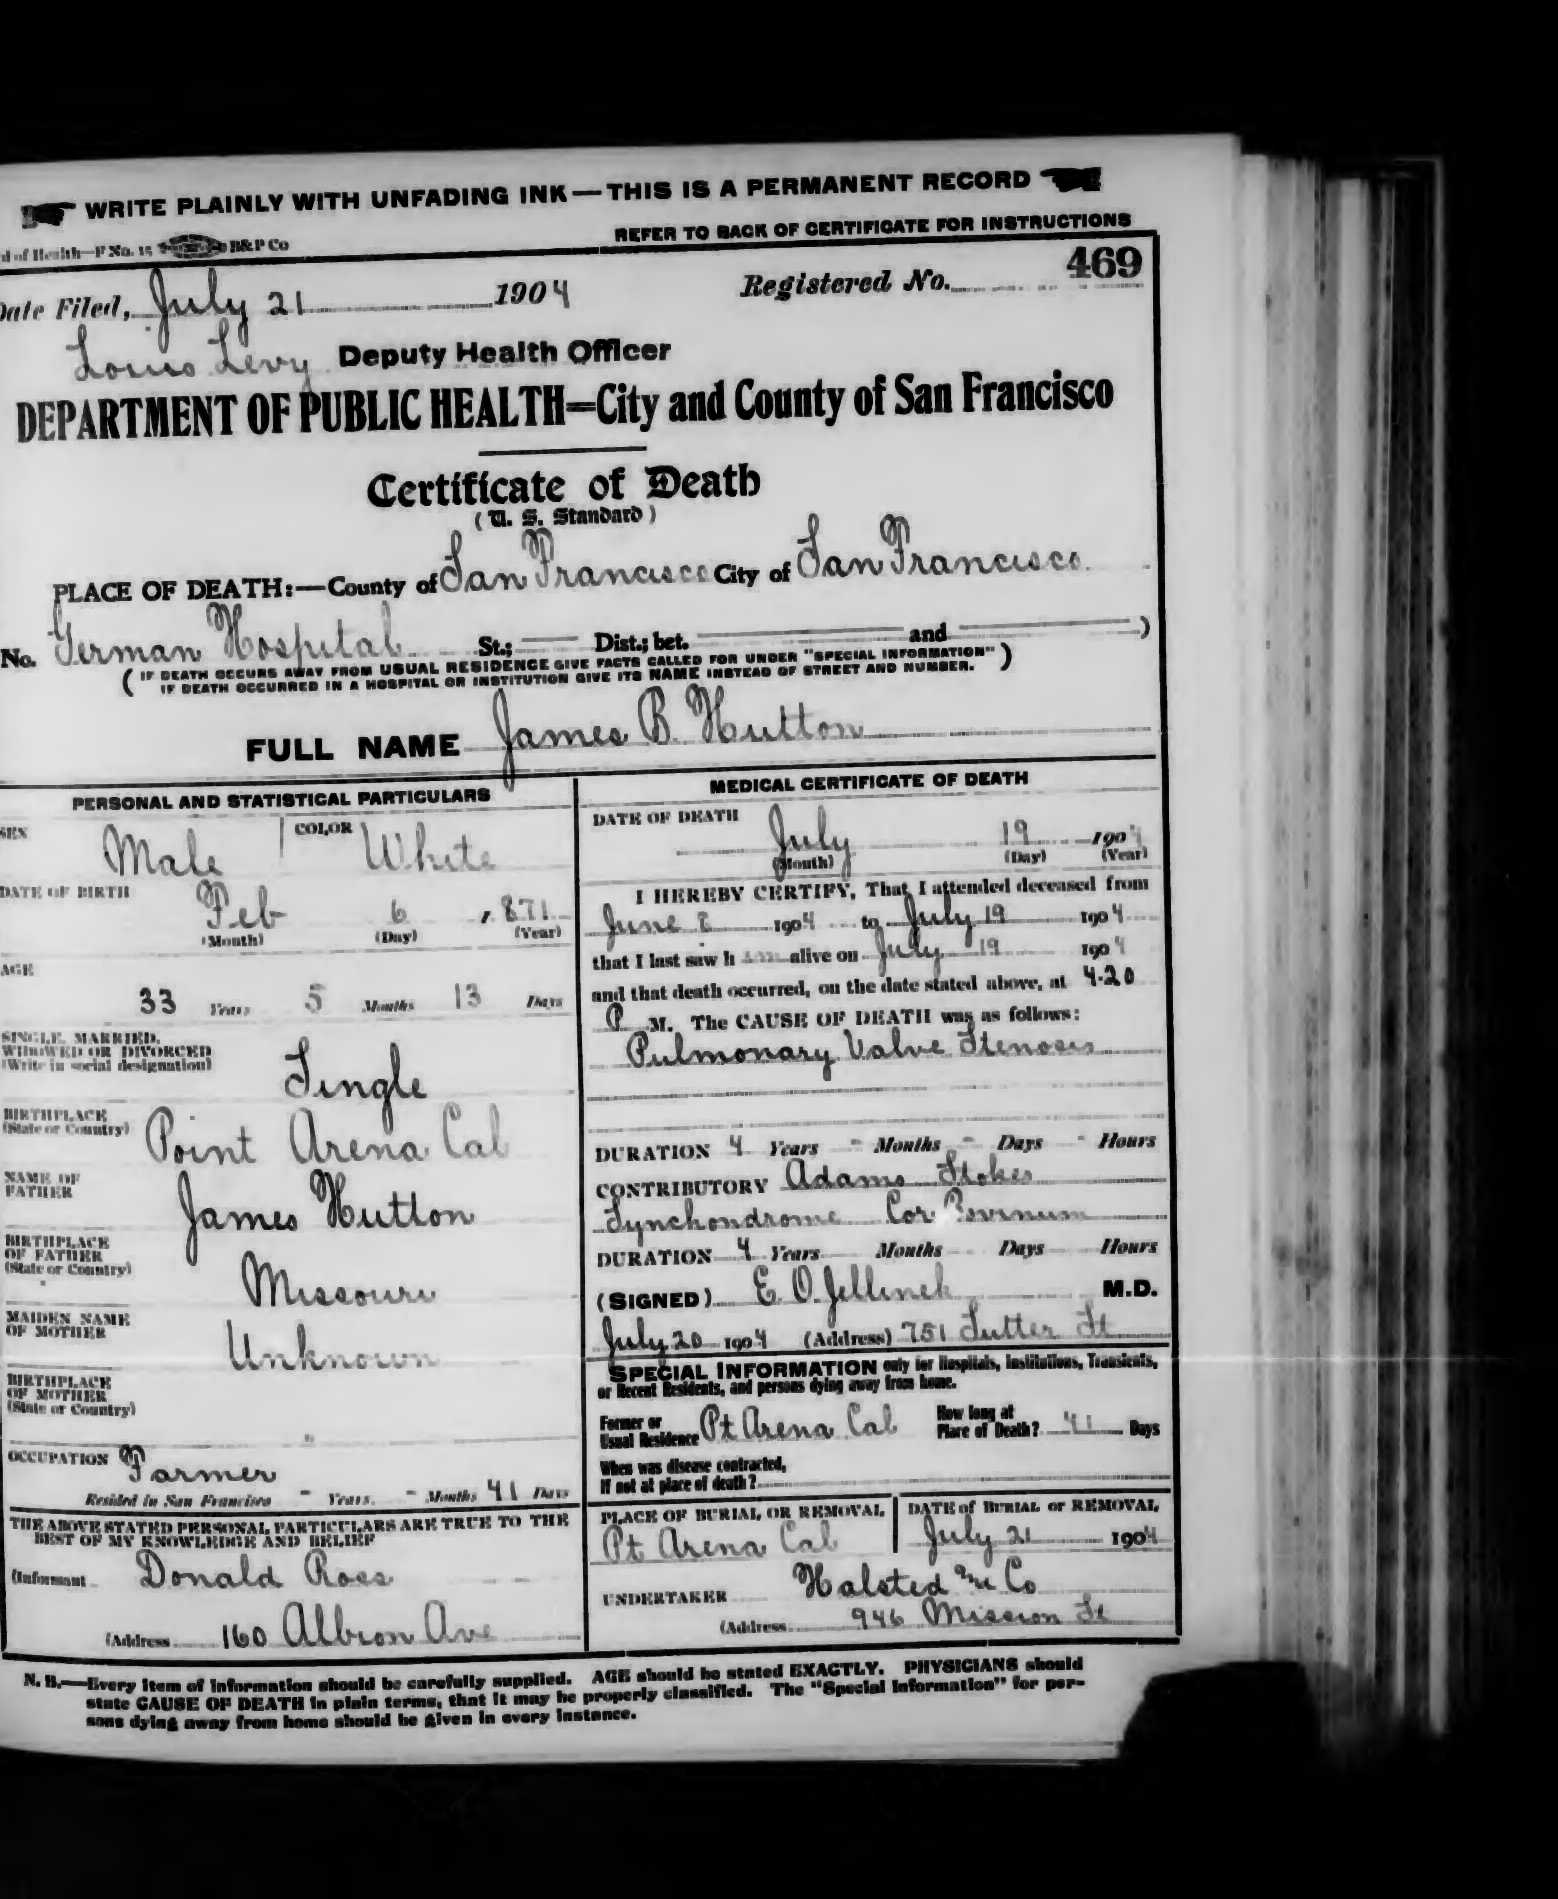 WRITE PLAINLY WITH UNFADING INK—THIS IS A PERMANENT RECORD
d of Health—F No. 15 B&P Co
REFER TO BACK OF CERTIFICATE FOR INSTRUCTIONS
Date Filed, July 21 1904 Registered No. 469
Louis Levy Deputy Health Officer
DEPARTMENT OF PUBLIC HEALTH=City and County of San Francisco
Certificate of Death
(U. S. Standard)
PLACE OF DEATH:—County of San Francisco City of San Francisco
No. German Hospital St.; Dist.; bet. and )
( IF DEATH OCCURS AWAY FROM USUAL RESIDENCE GIVE FACTS CALLED FOR UNDER "SPECIAL INFORMATION" )
IF DEATH OCCURRED IN A HOSPITAL OR INSTITUTION GIVE ITS NAME INSTEAD OF STREET AND NUMBER.
FULL NAME James B. Hutton
PERSONAL AND STATISTICAL PARTICULARS
SEX Male COLOR White
DATE OF BIRTH
Feb 6 , 871
(Month) (Day) (Year)
AGE
33 Years 5 Months 13 Days
SINGLE, MARRIED,
WIDOWED OR DIVORCED
(Write in social designation)
Single
BIRTHPLACE
(State or Country)
Point Arena Cal
NAME OF
FATHER
James Hutton
BIRTHPLACE
OF FATHER
(State or Country)
Missouri
MAIDEN NAME
OF MOTHER
Unknown
BIRTHPLACE
OF MOTHER
(State or Country)
"
OCCUPATION Farmer
Resided in San Francisco - Years - Months 41 Days
THE ABOVE STATED PERSONAL PARTICULARS ARE TRUE TO THE
BEST OF MY KNOWLEDGE AND BELIEF
(Informant Donald Ross
(Address 160 Albion Ave
MEDICAL CERTIFICATE OF DEATH
DATE OF DEATH
July 19 1904
(Month) (Day) (Year)
I HEREBY CERTIFY, That I attended deceased from
June 8 1904 to July 19 1904
that I last saw h alive on July 19 1904
and that death occurred, on the date stated above, at 4-20
P M. The CAUSE OF DEATH was as follows:
Pulmonary Valve Stenosis
DURATION 4 Years - Months - Days - Hours
CONTRIBUTORY Adams Stokes
Synchondrome Cor Bovinum
DURATION 4 Years Months Days Hours
(SIGNED) E. O. Jellinek M.D.
July 20 1904 (Address) 751 Sutter St
SPECIAL INFORMATION only for Hospitals, Institutions, Transients,
or Recent Residents, and persons dying away from home.
Former or
Usual Residence Pt Arena Cal
How long at
Place of Death? 41 Days
When was disease contracted,
If not at place of death?
PLACE OF BURIAL OR REMOVAL
Pt Arena Cal
DATE of BURIAL or REMOVAL
July 21 1904
UNDERTAKER Halsted and Co
(Address 946 Mission St
N. B.—Every item of information should be carefully supplied. AGE should be stated EXACTLY. PHYSICIANS should
state CAUSE OF DEATH in plain terms, that it may be properly classified. The "Special Information" for per-
sons dying away from home should be given in every instance.